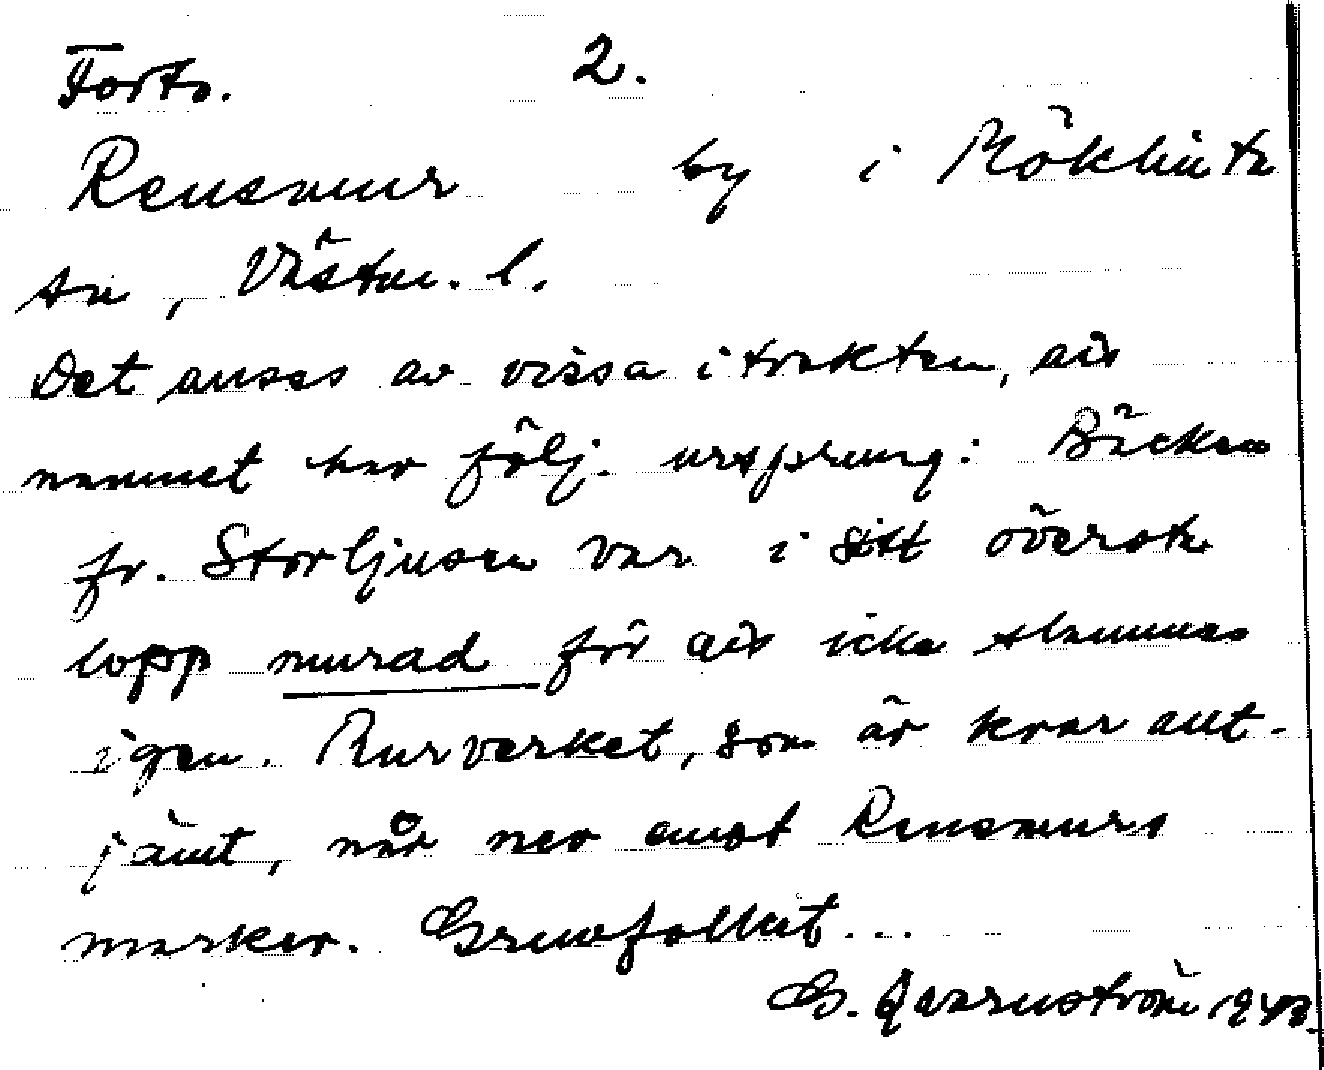 Forts. 2.
Rensmur by i Möklinta
sn, Västm. l.
Det anses av vissa i trakten, att
namnet har följ. ursprung: Bäcken
fr. Storljusen var i sitt översta
lopp murad för att icke slammas
igen. Murverket, som är kvar allt-
jämt, når ner emot Rensmurs
marker. Gruvfolket...
G. Qvarnström 1943.